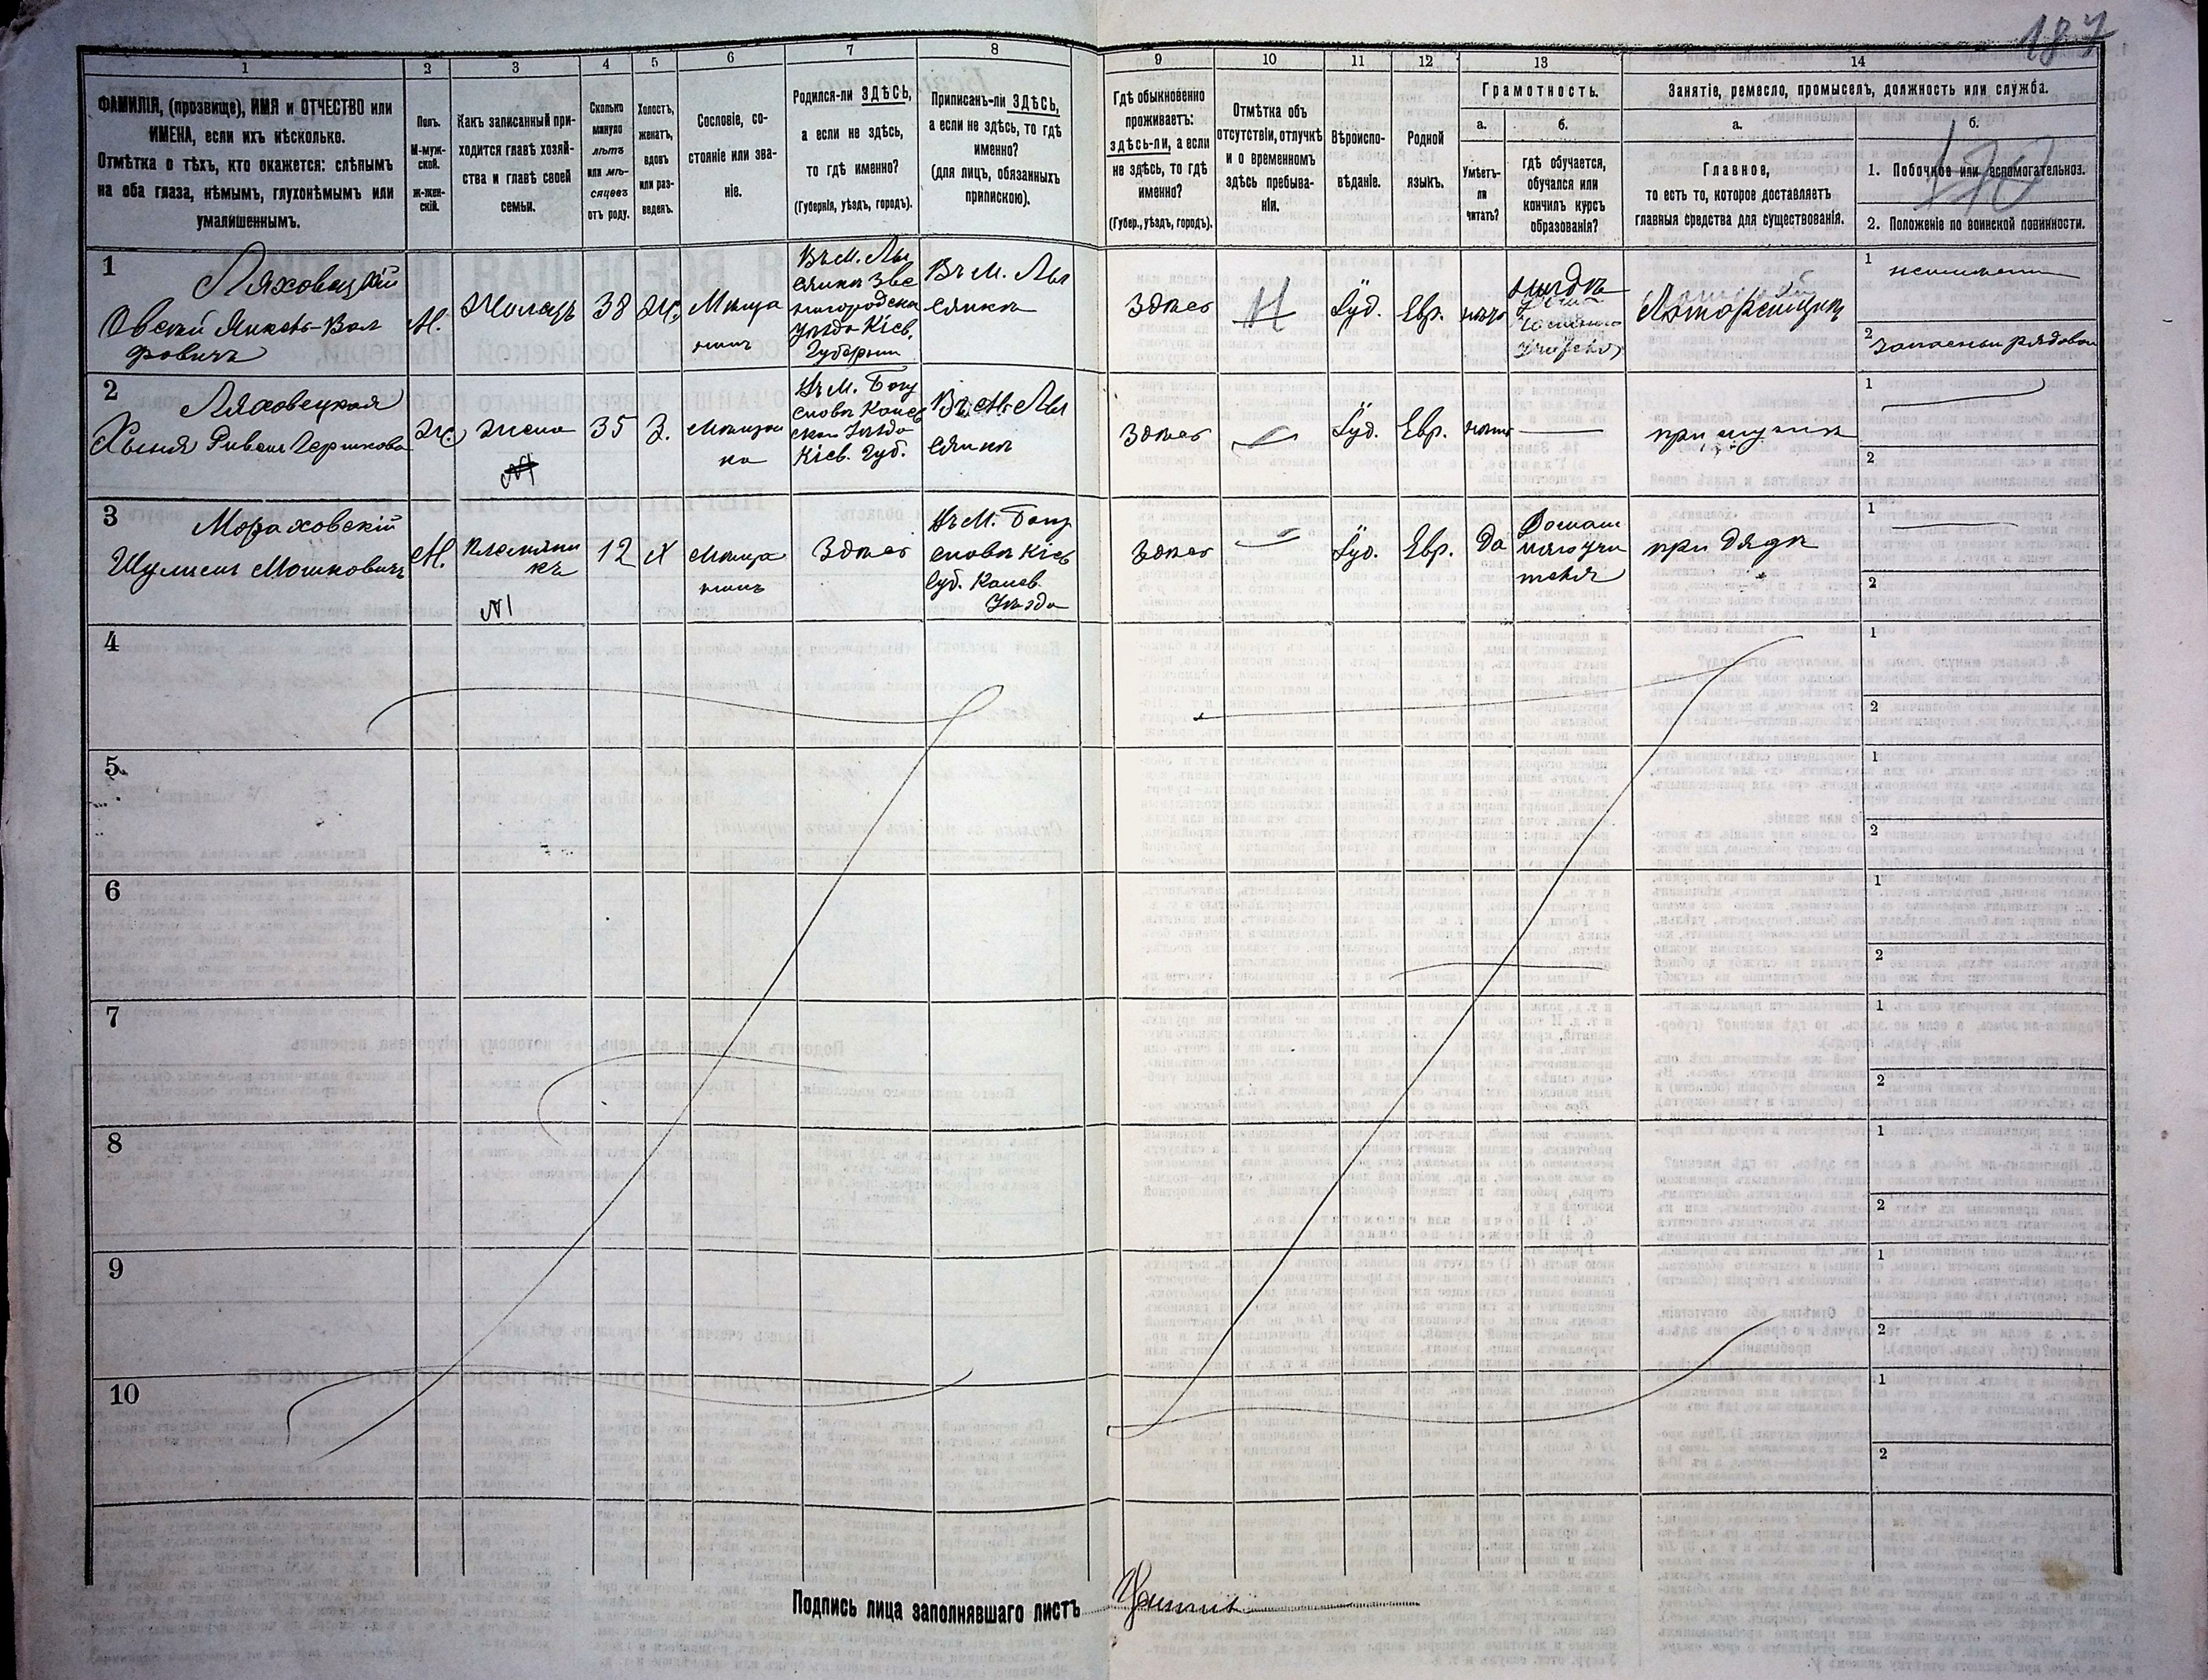 187
1 2 3 4 5 6 7 8 9 10 11 12 13 14
ФАМИЛІЯ, (прозвище), ИМЯ и ОТЧЕСТВО или
ИМЕНА, если ихъ нѣсколько.
Отмѣтка о тѣхъ, кто окажется: слѣпымъ
на оба глаза, нѣмымъ, глухонѣмымъ или
умалишеннымъ.
Полъ.
М-муж-
ской.
ж-жен-
скій.
Какъ записанный при-
ходится главѣ хозяй-
ства и главѣ своей
семьи.
Сколько
минуло
лѣтъ
или мѣ-
сяцевъ
отъ роду.
Холостъ,
женатъ,
вдовъ
или раз-
веденъ.
Сословіе, со-
стояніе или зва-
ніе.
Родился-ли ЗДѢСЬ,
а если не здѣсь,
то гдѣ именно?
(Губернія, уѣздъ, городъ).
Приписанъ-ли ЗДѢСЬ,
а если не здѣсь, то гдѣ
именно?
(для лицъ, обязанныхъ
припискою).
Гдѣ обыкновенно
проживаетъ:
здѣсь-ли, а если
не здѣсь, то гдѣ
именно?
(Губер., уѣздъ, городъ).
Отмѣтка объ
отсутствіи, отлучкѣ
и о временномъ
здѣсь пребыва-
ніи.
Вѣроиспо-
вѣданіе.
Родной
языкъ.
Грамотность.
а.
Умѣетъ-
ли
читать?
б.
гдѣ обучается,
обучался или
кончилъ курсъ
образованія?
Занятіе, ремесло, промыселъ, должность или служба.
а.
Главное,
то есть то, которое доставляетъ
главныя средства для существованія.
б.
1. Побочное или вспомогательное.
2. Положеніе по воинской повинности.
1
Ляховецкій
Овсій Янкель-Вол
фовичъ
М.
38
Ж.
Мѣща
нинъ
Въ М. Лы
сянкѣ Зве
нигородска
Уѣзда Кіев.
Губерніи
Въ М. Лы
сянкѣ
Здѣсь
Іуд.
Евр.
1
2 Запасный рядовой
2
Ляховецкая
Хыня Ривель Гершкова
Ж
Жена
35
З.
Мѣщан
ка
Въ М. Богу
славѣ Канев
скаго Уѣзда
Кіев. Губ.
Въ М. Лы
сянкѣ
Здѣсь
Іуд.
Евр.
при мужѣ
1
2
3
Мораховскій
Шулимъ Мошковичъ
М.
Племянни
къ
N1
12
Х
Мѣща
нинъ
Здѣсь
Въ М. Богу
славѣ Кіев
Губ. Канев.
Уѣзда
Здѣсь
Іуд.
Евр.
Да
Домаш
няго учи
теля
при дядѣ
1
2
4
1
2
5
1
2
6
1
2
7
1
2
8
1
2
9
1
2
10
1
2
Подпись лица заполнявшаго листъ